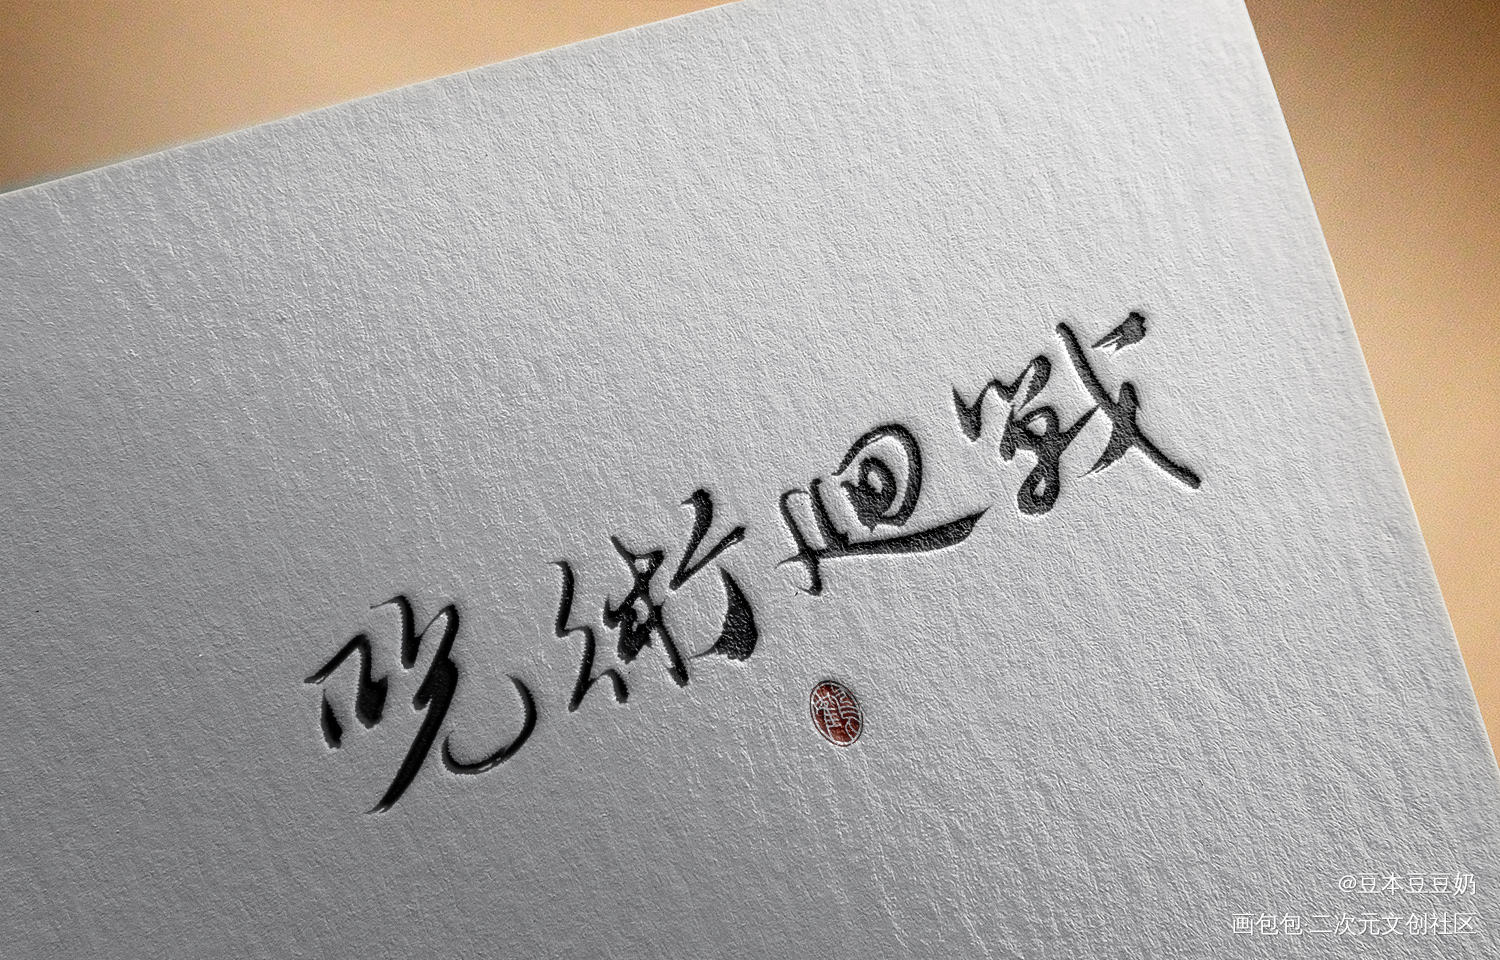 呪術迴戰
@豆本豆豆奶
画包包·二次元文创社区